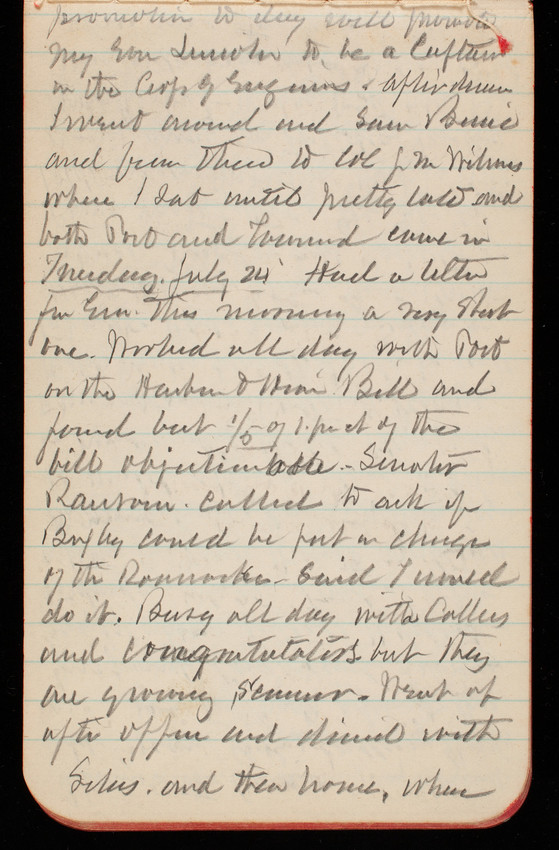 promotion to day will promote
my Son Lincoln to be a Captain
in the Corps of Engineers. After dinner
I went around and saw
and from there to Col J M Wilson
where I sat until pretty late and
both Post and Townsend came in
Tuesday. July 24 Had a letter
fm Em. this morning a very short
one. Worked all day with Post
on the Harbor & River Bill and
found but 1/5 of 1. per ct of the
bill objectionable - Senator
Ransom. called to ask if
Bixby could be put in charge
of the Roanoke - Said I would
do it. Busy all day with Callers
and congratulators but they
are growing scarcer. Went up
aftr office and dined with
and then home, where